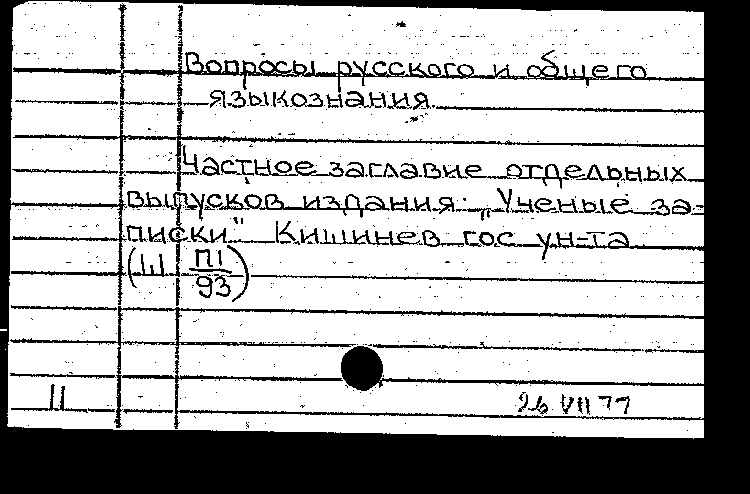 Вопросы русского и общего
языкознания
Частное заглавие отдельных
выпусков издания: „Ученые за-
писки" Кишинев гос ун-та
(Ш П1/93)
II 26 VII 77